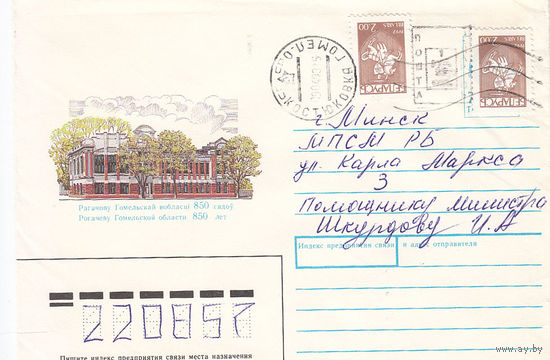 БЕЛАРУСЬ
BELARUS
2.00
1992
БЕЛАРУСЬ
BELARUS
2.00
1992
ПОШТА
КОСТЮКОВКА ГОМЕЛ. ОБЛ.
г. Минск
МПСМ РБ
ул. Карла Маркса
3
Помощнику Министра
Шкурдову И.А
Рагачову Гомельскай вобласці 850 гадоў
Рогачеву Гомельской области 850 лет
Индекс предприятия связи и адрес отправителя
220857
Пишите индекс предприятия связи места назначения
www.ay.by